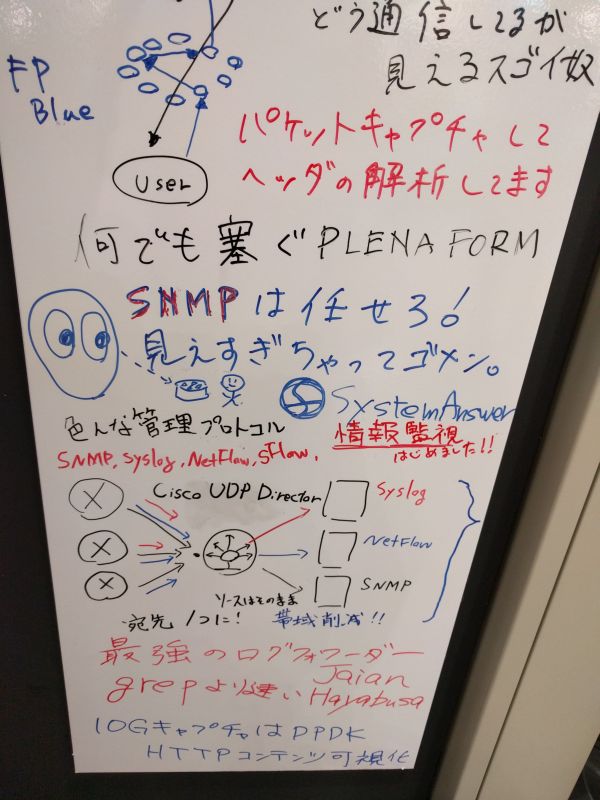 どう通信してるが
見えるスゴイ奴
FP
Blue
パケットキャプチャして
ヘッダの解析してます
User
何でも塞ぐPLENAFORM
SNMPは任せろ!
見えすぎちゃってゴメン。
S SystemAnswer
色んな管理プロトコル
情報監視
はじめました!!
SNMP, Syslog, NetFlow, SFlow,
Cisco UDP Director
Syslog
NetFlow
SNMP
ソースはそのまま
宛先1つに!
帯域削減!!
最強のログフォワーダー
Jaian
grepより速い Hayabusa
10GキャプチャはDPDK
HTTPコンテンツ可視化